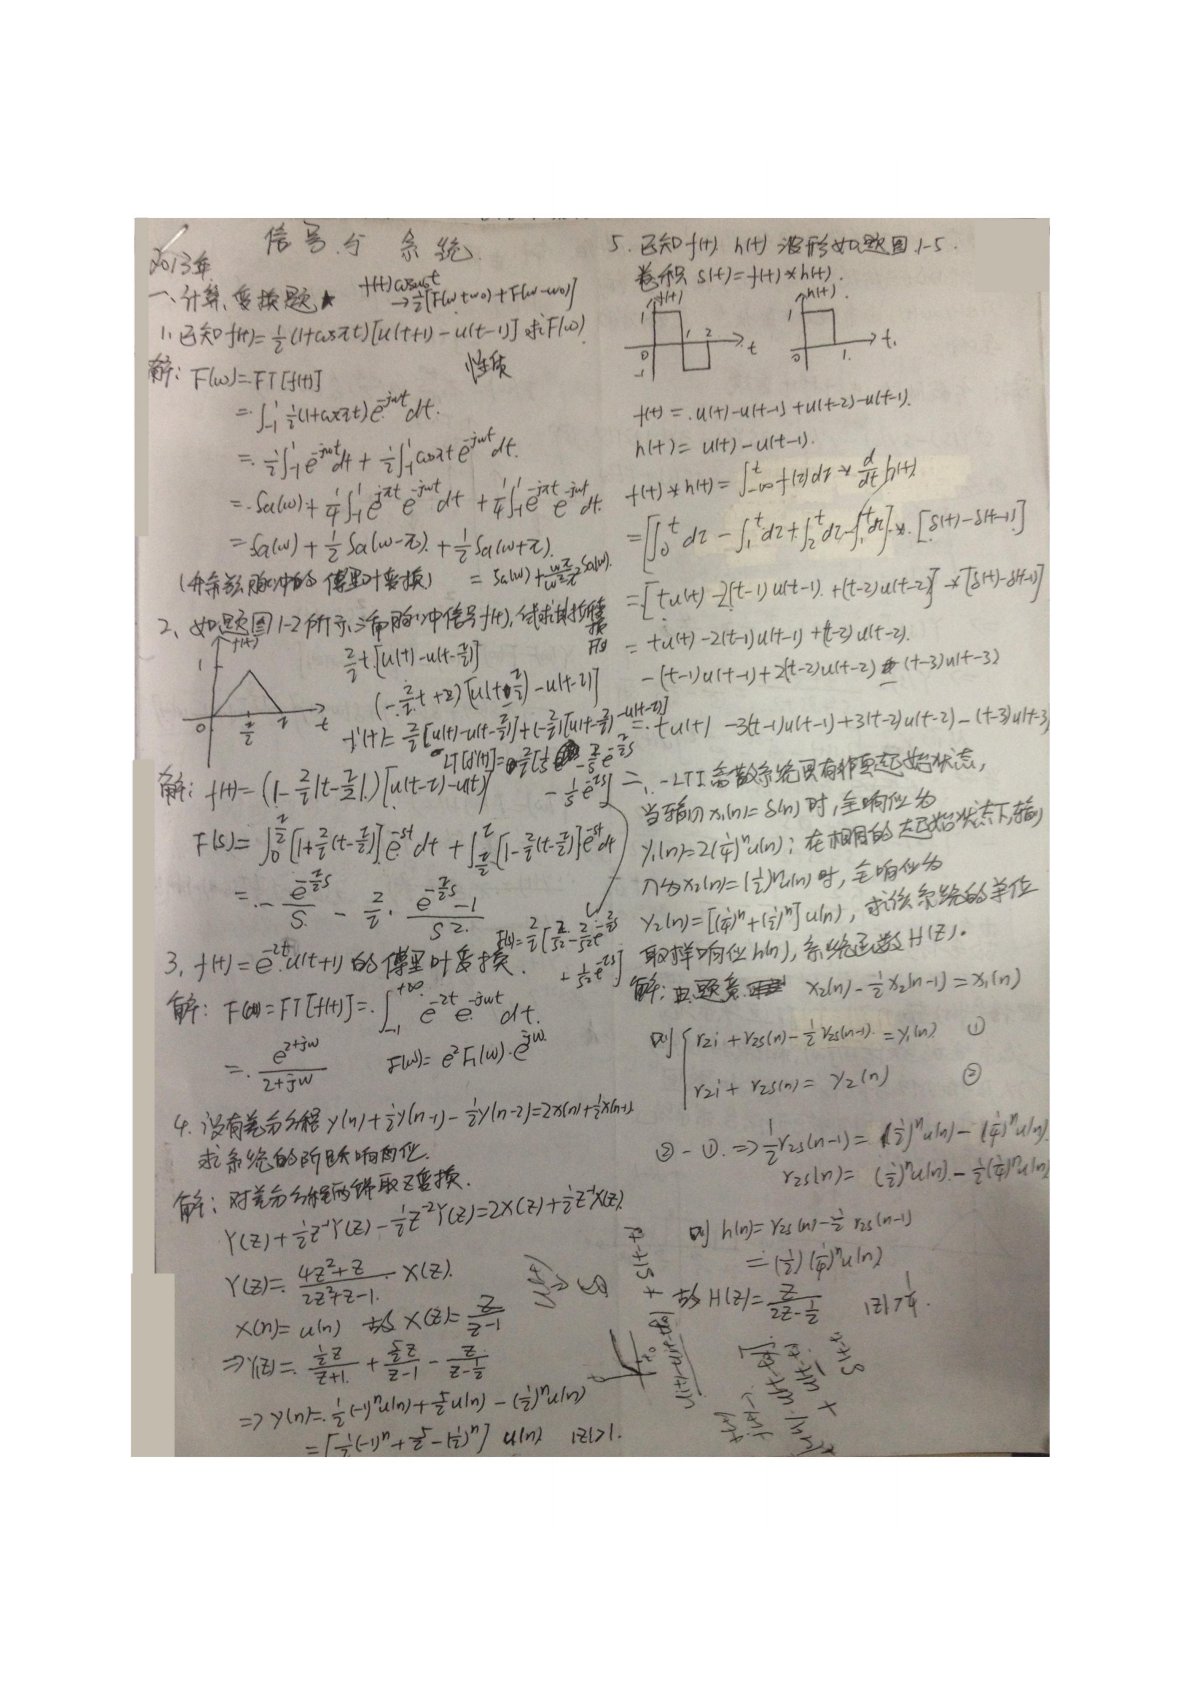 信号与系统
2013年
一、计算、变换题 ★
f(t)cosω₀t
→½[F(ω+ω₀)+F(ω-ω₀)]
1、已知f(t)=½(1+cosπt)[u(t+1)-u(t-1)] 求F(ω)
性质
解: F(ω)=FT[f(t)]
=∫₋₁¹ ½(1+cosπt)e^{-jωt}dt.
=½∫₋₁¹ e^{-jωt}dt + ½∫₋₁¹ cosπt e^{-jωt}dt.
=Sa(ω)+¼∫₋₁¹ e^{jπt}e^{-jωt}dt + ¼∫₋₁¹ e^{-jπt}e^{-jωt}dt.
=Sa(ω)+½Sa(ω-π)+½Sa(ω+π).
(升余弦脉冲的傅里叶变换)
2、如题图1-2所示三角脉冲信号f(t),试求其拉
f(t)
1
0 τ/2 τ t
(2/τ)t[u(t)-u(t-τ/2)]
(-(2/τ)t+2)[u(t-τ/2)-u(t-τ)]
f'(t)=(2/τ)[u(t)-u(t-τ/2)]+(-2/τ)[u(t-τ/2)-u(t-τ)]
解: f(t)=(1-(2/τ)|t-τ/2|)[u(t-τ)-u(t)]
F(s)=∫₀^{τ/2}[1+(2/τ)(t-τ/2)]e^{-st}dt+∫_{τ/2}^{τ}[1-(2/τ)(t-τ/2)]e^{-st}dt
=-e^{-(τ/2)s}/s - (2/τ)·(e^{-(τ/2)s}-1)/s²
3、f(t)=e^{-2t}u(t+1)的傅里叶变换.
解: F(ω)=FT[f(t)]=∫₋₁^{+∞} e^{-2t}e^{-jωt}dt.
=e^{2+jω}/(2+jω) F(ω)=e²F₁(ω)·e^{jω}
4、设有差分方程y(n)+½y(n-1)-½y(n-2)=2x(n)+½x(n-1)
求系统的阶跃响应.
解: 对差分方程两端取Z变换.
Y(z)+½z⁻¹Y(z)-½z⁻²Y(z)=2X(z)+½z⁻¹X(z)
Y(z)=(4z²+z)/(2z²+z-1)·X(z).
x(n)=u(n) 故X(z)=z/(z-1)
⇒Y(z)=½z/(z+1)+(5/2)z/(z-1)-z/(z-½)
⇒y(n)=½(-1)ⁿu(n)+(5/2)u(n)-(½)ⁿu(n)
=[½(-1)ⁿ+5/2-(½)ⁿ]u(n) |z|>1.
5、已知f(t) h(t)波形如题图1-5.
卷积 s(t)=f(t)*h(t).
f(t)
1
0 1 2 t
-1
h(t)
1
0 1 t
f(t)=u(t)-u(t-1)+u(t-2)-u(t-1).
h(t)=u(t)-u(t-1).
f(t)*h(t)=∫₋∞ᵗ f(τ)dτ * (d/dt)h(t)
=[∫₀ᵗdτ-∫₁ᵗdτ+∫₂ᵗdτ-∫₁ᵗdτ]*[δ(t)-δ(t-1)]
=[tu(t)-2(t-1)u(t-1)+(t-2)u(t-2)]*[δ(t)-δ(t-1)]
=tu(t)-2(t-1)u(t-1)+(t-2)u(t-2).
-(t-1)u(t-1)+2(t-2)u(t-2)-(t-3)u(t-3)
=tu(t)-3(t-1)u(t-1)+3(t-2)u(t-2)-(t-3)u(t-3)
二、一LTI离散系统具有非零起始状态,
当输入x₁(n)=δ(n)时,全响应为
y₁(n)=2(¼)ⁿu(n);在相同的起始状态下,输
入为x₂(n)=(½)ⁿu(n)时,全响应为
y₂(n)=[(¼)ⁿ+(½)ⁿ]u(n),求该系统的单位
取样响应h(n),系统函数H(z).
解: 由题意 x₂(n)-½x₂(n-1)=x₁(n)
则 rzi+rzs(n)-½rzs(n-1)=y₁(n) ①
rzi+rzs(n)=y₂(n) ②
②-①⇒½rzs(n-1)=(½)ⁿu(n)-(¼)ⁿu(n)
rzs(n)=(½)ⁿu(n)-½(¼)ⁿu(n)
则h(n)=rzs(n)-½rzs(n-1)
=(½)(¼)ⁿu(n)
故H(z)=z/(2z-½) |z|>¼.